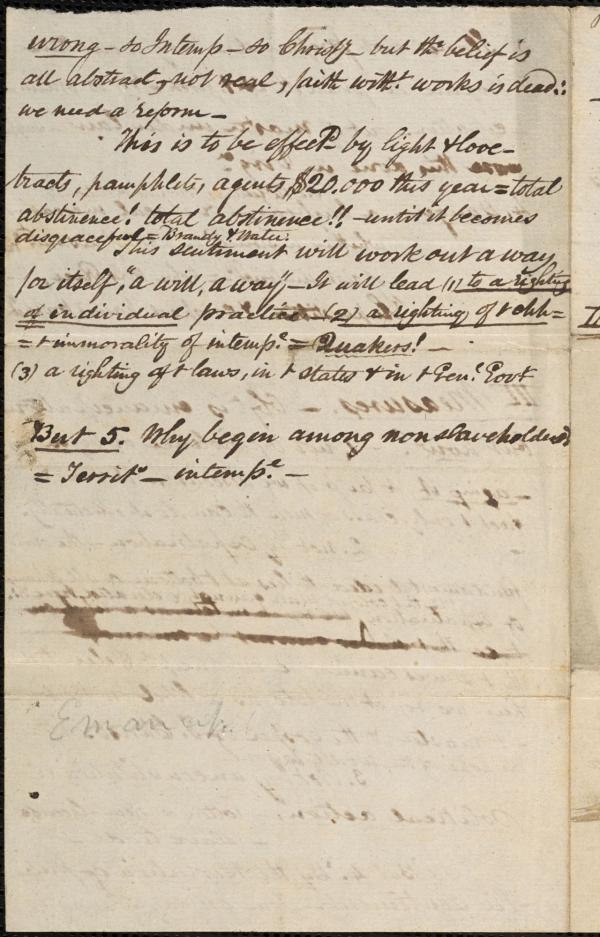 wrong – so Intemp – so Christy – but the belief is
all abstract, not real, faith witht. works is dead:.
we need a reform –
This is to be effectd. by light & love –
tracts, pamphlets, agents, $20.000 this year = total
abstinence! total abstinence!! – until it becomes
disgraceful = Brandy & Water.
This sentiment will work out a way
for itself, "a will, a way" – It will lead (1) to a righting
of individual practice (2) a righting of t chh =
= t immorality of intempe. = Quakers! –
(3) a righting of t laws, in t states & in t Genl. Govt
But 5. Why begin among nonslaveholders
= Territo – intempe. –